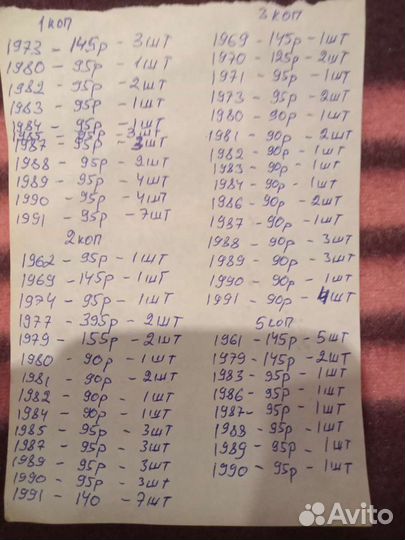 1 коп
1973 - 145р - 3шт
1980 - 95р - 1шт
1982 - 95р - 2шт
1983 - 95р - 1шт
1984 - 95р - 1шт
1985 - 95р - 3шт
1987 - 95р - 3шт
1988 - 95р - 2шт
1989 - 95р - 4шт
1990 - 95р - 4шт
1991 - 95р - 7шт
2 коп
1962 - 95р - 1шт
1969 - 145р - 1шт
1974 - 95р - 1шт
1977 - 395р - 2шт
1979 - 155р - 2шт
1980 - 90р - 1шт
1981 - 90р - 2шт
1982 - 90р - 1шт
1984 - 90р - 1шт
1985 - 95р - 3шт
1987 - 95р - 3шт
1989 - 95р - 3шт
1990 - 95р - 3шт
1991 - 140 - 7шт
3 коп
1969 - 145р - 1шт
1970 - 125р - 2шт
1971 - 95р - 1шт
1973 - 95р - 2шт
1980 - 90р - 1шт
1981 - 90р - 2шт
1982 - 90р - 1шт
1983 - 90р - 1шт
1984 - 90р - 1шт
1986 - 90р - 2шт
1987 - 90р - 1шт
1988 - 90р - 3шт
1989 - 90р - 3шт
1990 - 90р - 1шт
1991 - 90р - 4шт
5 коп
1961 - 145р - 5шт
1979 - 145р - 2шт
1983 - 95р - 1шт
1986 - 95р - 1шт
1987 - 95р - 1шт
1988 - 95р - 1шт
1989 - 95р - 1шт
1990 - 95р - 1шт
Avito